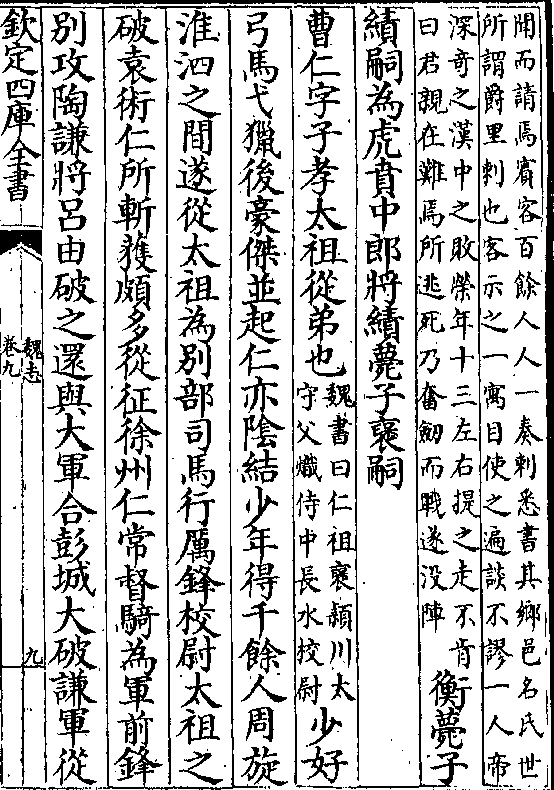 聞而請焉賓客百餘人人一奏刺悉書其鄉邑名氏世
所謂爵里刺也客示之一寓目使之遍談不謬一人帝
深奇之漢中之敗榮年十三左右提之走不肯
曰君親在難焉所逃死乃奮劒而戰遂没陣
衡薨子
績嗣為虎賁中郎將績薨子襃嗣
曹仁字子孝太祖從弟也
魏書曰仁祖襃潁川太
守父熾侍中長水校尉
少好
弓馬弋獵後豪傑並起仁亦陰結少年得千餘人周旋
淮泗之間遂從太祖為别部司馬行厲鋒校尉太祖之
破袁術仁所斬獲頗多從征徐州仁常督騎為軍前鋒
别攻陶謙將吕由破之還與大軍合彭城大破謙軍從
欽定四庫全書
魏志
卷九
九